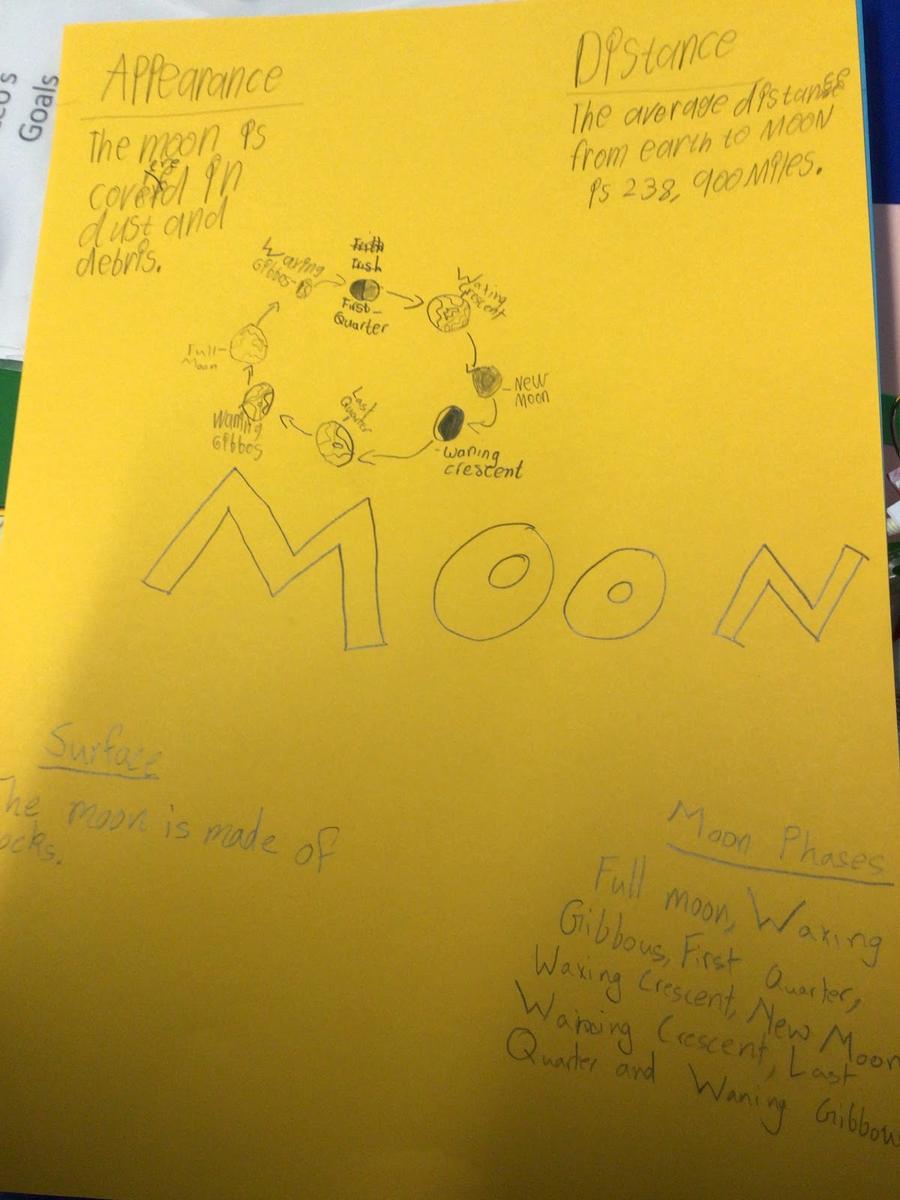 Goals
Appearance
The moon is
covered in
dust and
debris.
Distance
The average distance
from earth to MOON
is 238,900 Miles.
Waxing
Gibbos-
First-
Quarter
Waxing
Crescent
-New
Moon
-waning
crescent
Last
Quarter
Waning
Gibbos
Full-
Moon
MOON
Surface
he moon is made of
ocks.
Moon Phases
Full moon, Waxing
Gibbous, First Quarter,
Waxing Crescent, New Moon
Crescent, Last
Quarter and Waning Gibbou